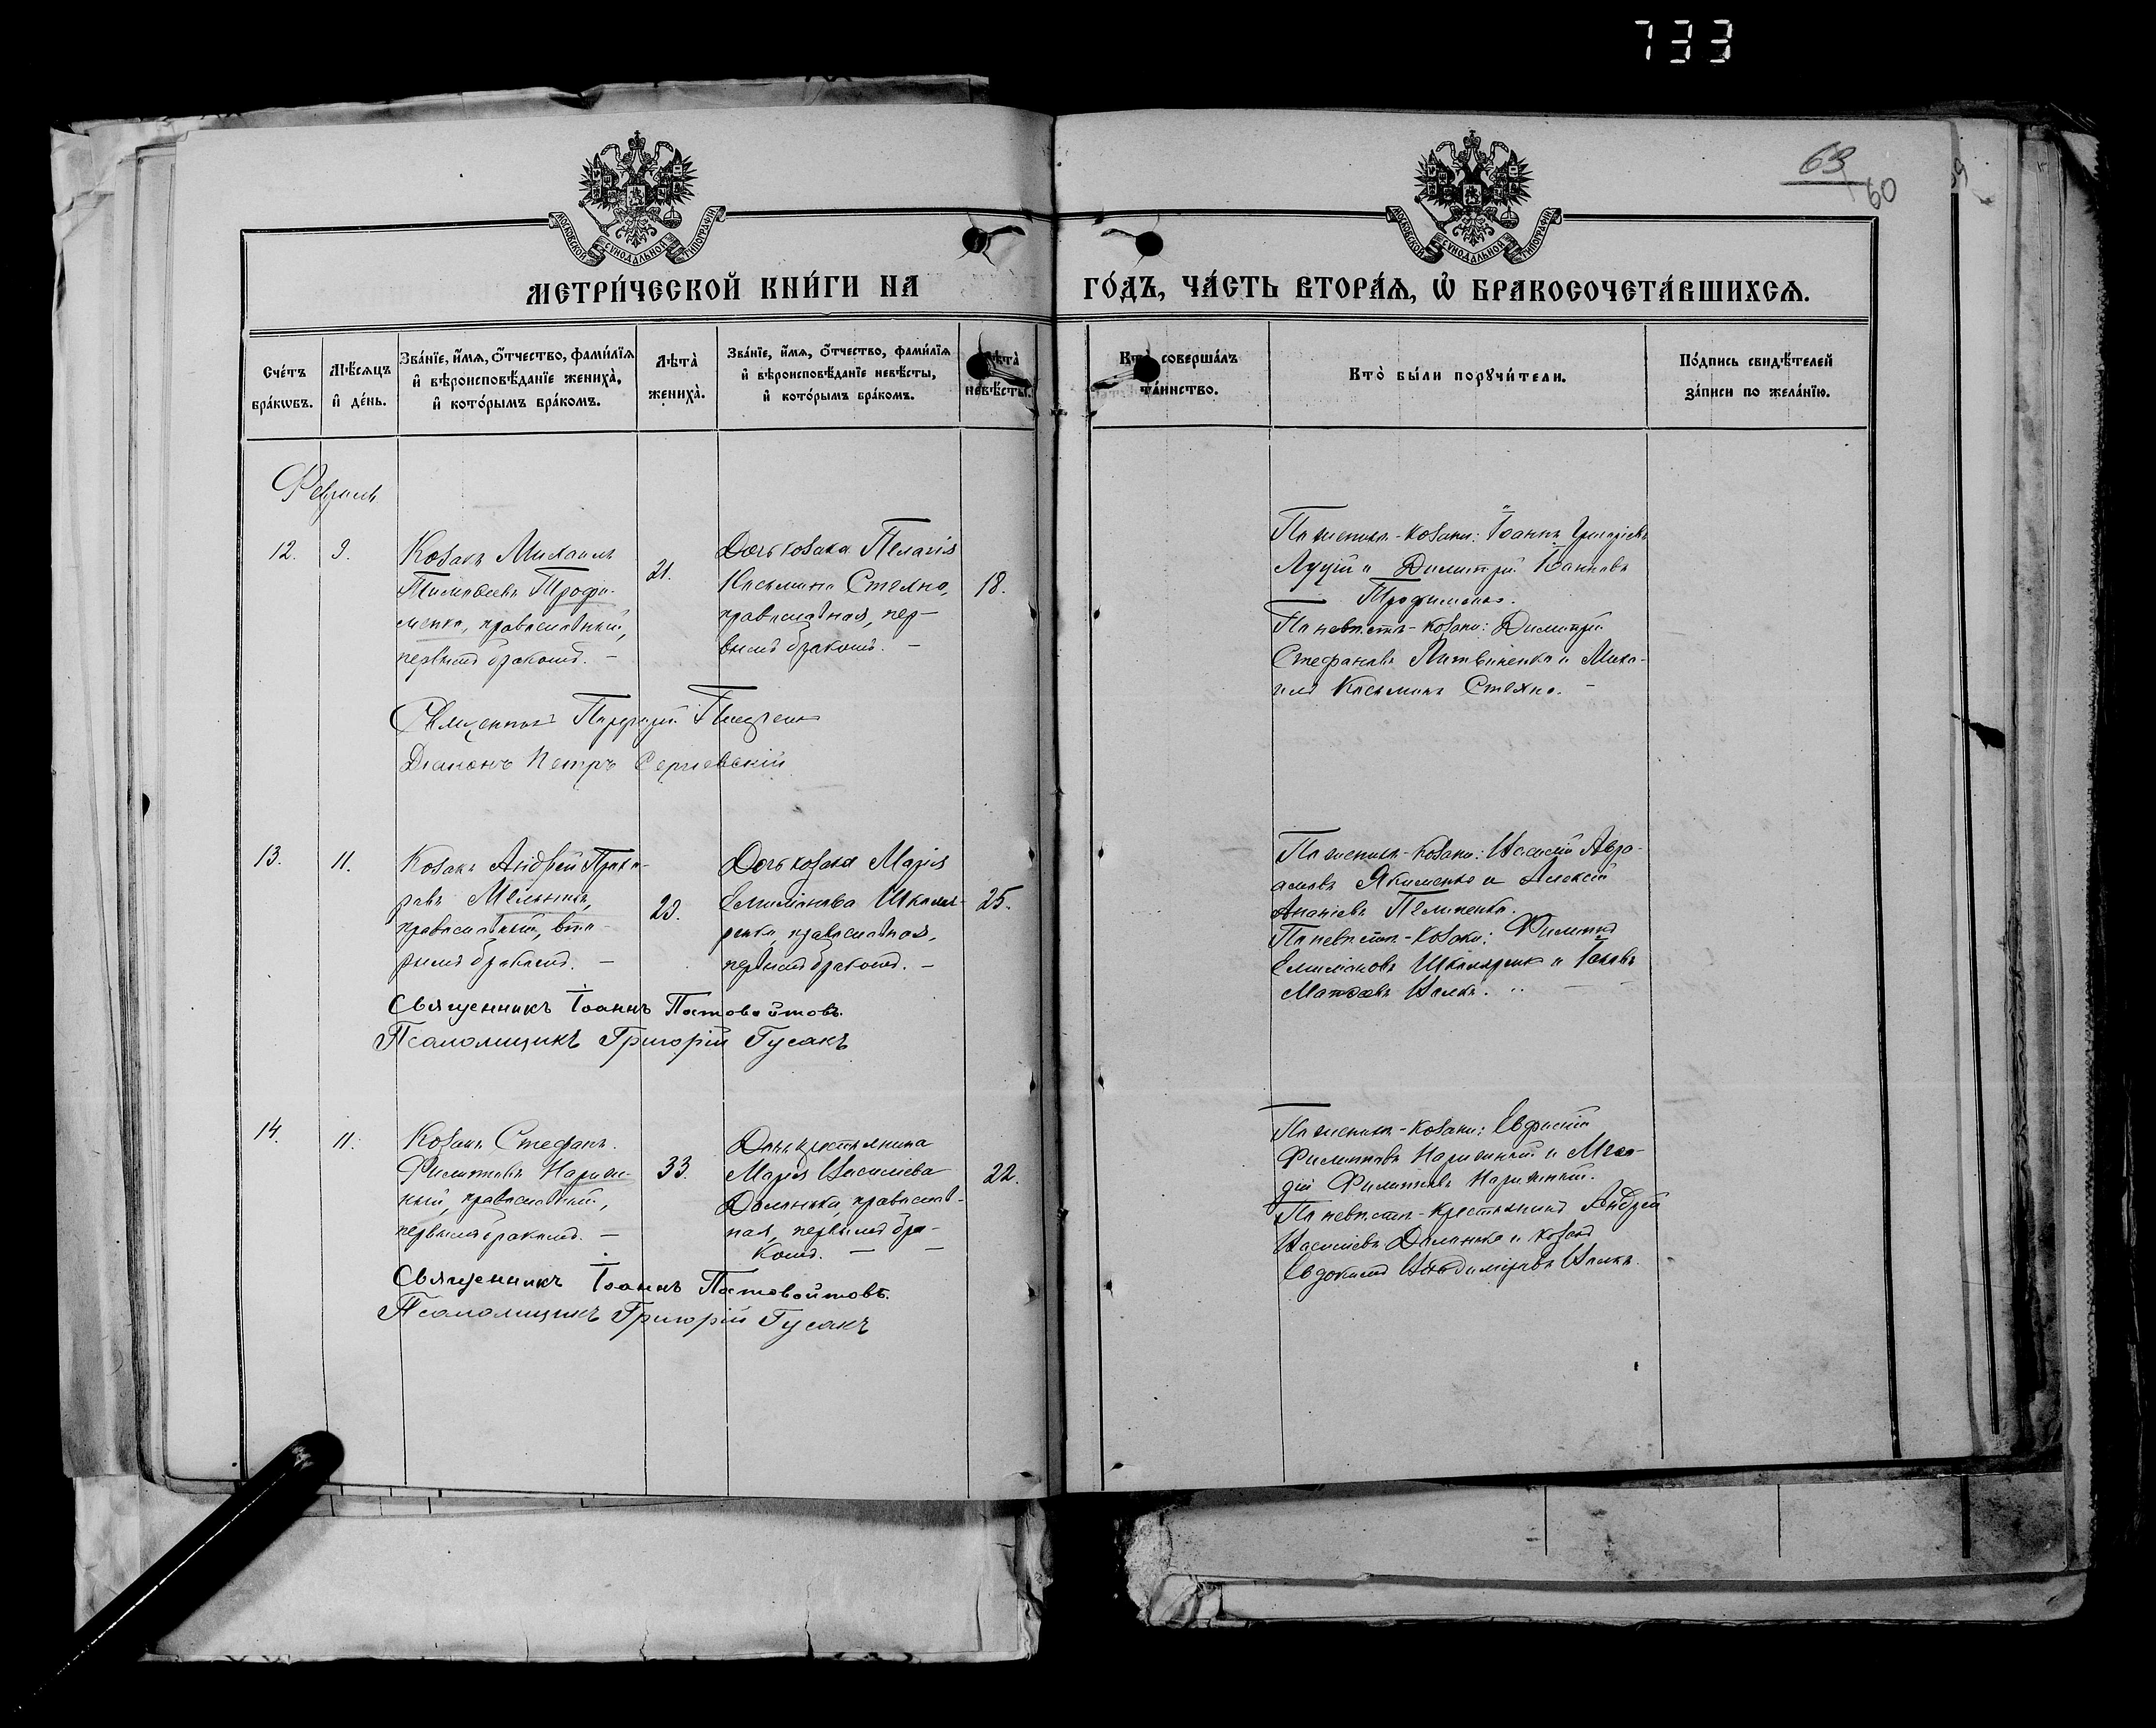 733
63
60
59
МОСКОВСКОЙ СѴНОДАЛЬНОЙ ТИПОГРАФІИ
МОСКОВСКОЙ СѴНОДАЛЬНОЙ ТИПОГРАФІИ
МЕТРИ́ЧЕСКОЙ КНИ́ГИ НА
ГО́ДЪ, ЧА́СТЬ ВТОРА́Ѧ, Ѡ҆ БРАКОСОЧЕТА́ВШИХСѦ.
Сче́тъ
бра́кѡвъ.
Мѣ́сѧцъ
и҆ де́нь.
Зва́нїе, и҆́мѧ, ѻ҆́тчество, фами́лїѧ
и҆ вѣроисповѣ́данїе жениха̀,
и҆ кото́рымъ бра́комъ.
Лѣта̀
жениха̀.
Зва́нїе, и҆́мѧ, ѻ҆́тчество, фами́лїѧ
и҆ вѣроисповѣ́данїе невѣ́сты,
и҆ кото́рымъ бра́комъ.
Лѣта̀
невѣ́сты.
Кто̀ соверша́лъ
та́инство.
Кто̀ бы́ли порꙋчи́тели.
По́дпись свидѣ́телей
за́писи по жела́нїю.
Февраль
12.
9.
Козакъ Михаилъ
Тимоѳеевъ Трофи-
менко, православный,
первымъ бракомъ. –
21.
Дочь козака Пелагія
Косьмина Стехно,
православная, пер-
вымъ бракомъ. –
18.
По женихѣ - козаки: Іоаннъ Григоріевъ
Луцій и Димитрій Іоанновъ
Трофименко.
По невѣстѣ - козаки: Димитрій
Стефановъ Литвиненко и Миха-
илъ Косьминъ Стехно. –
Священникъ
Діаконъ Петръ Сергіевскій
13.
11.
Козакъ Андрей Прохо-
ровъ Мельникъ,
православный, вто-
рымъ бракомъ. –
23.
Дочь козака Марія
Емиліанова Шкляр-
енко, православная,
первымъ бракомъ. –
25.
По женихѣ - козаки: Василій Авра-
амовъ Якименко и Алексій
Ананіевъ Пелипенко.
По невѣстѣ - козаки: Филиппъ
Емиліановъ Шкляренко и Іаковъ
Матѳеевъ
Священникъ Іоаннъ Постовойтовъ.
Псаломщикъ Григорій Гусакъ
14.
11.
Козакъ Стефанъ
Филипповъ Нариж-
ный, православный,
первымъ бракомъ. –
33.
Дочь крестьянина
Марія Василіева
Долинько, православ-
ная, первымъ бра-
комъ. –
22.
По женихѣ - козаки: Евфимій
Филипповъ Нарижный и Меѳо-
дій Филипповъ Нарижный.
По невѣстѣ - крестьянинъ Андрей
Василіевъ Долинько и козакъ
Евдокимъ
Священникъ Іоаннъ Постовойтовъ.
Псаломщикъ Григорій Гусакъ